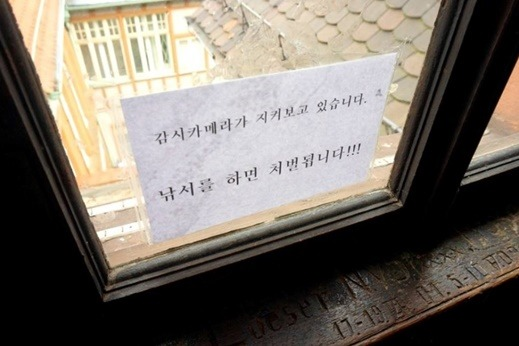 감시카메라가 지켜보고 있습니다.
낚서를 하면 처벌됩니다!!!